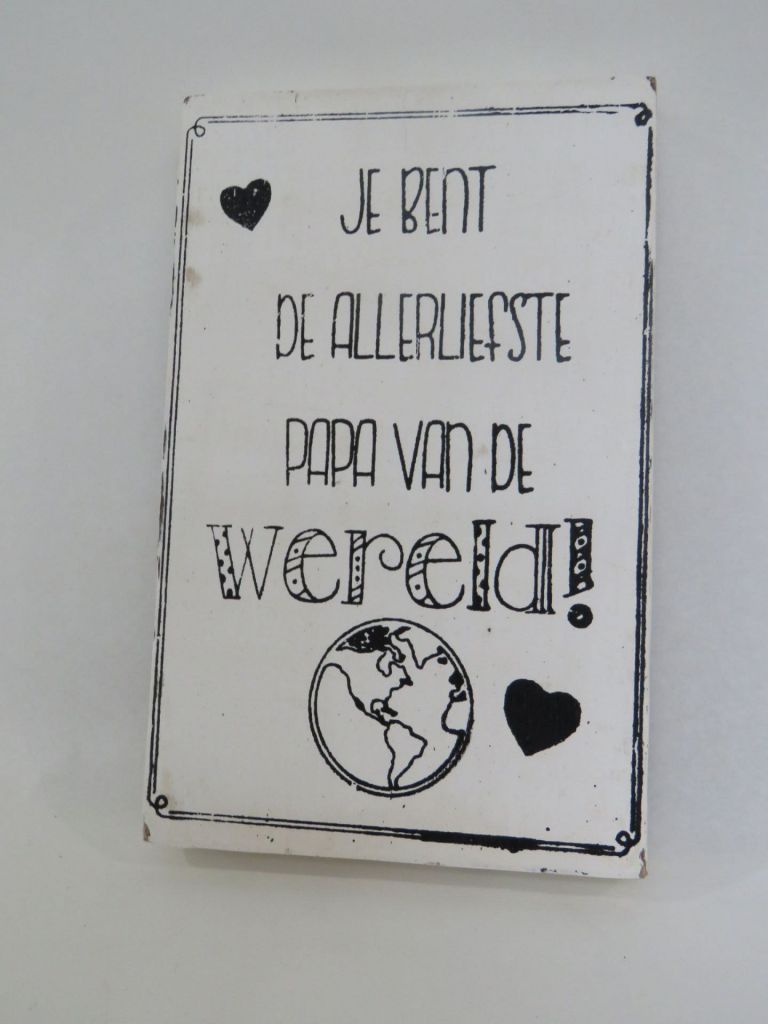 JE BENT
DE ALLERLIEFSTE
PAPA VAN DE
wereld!